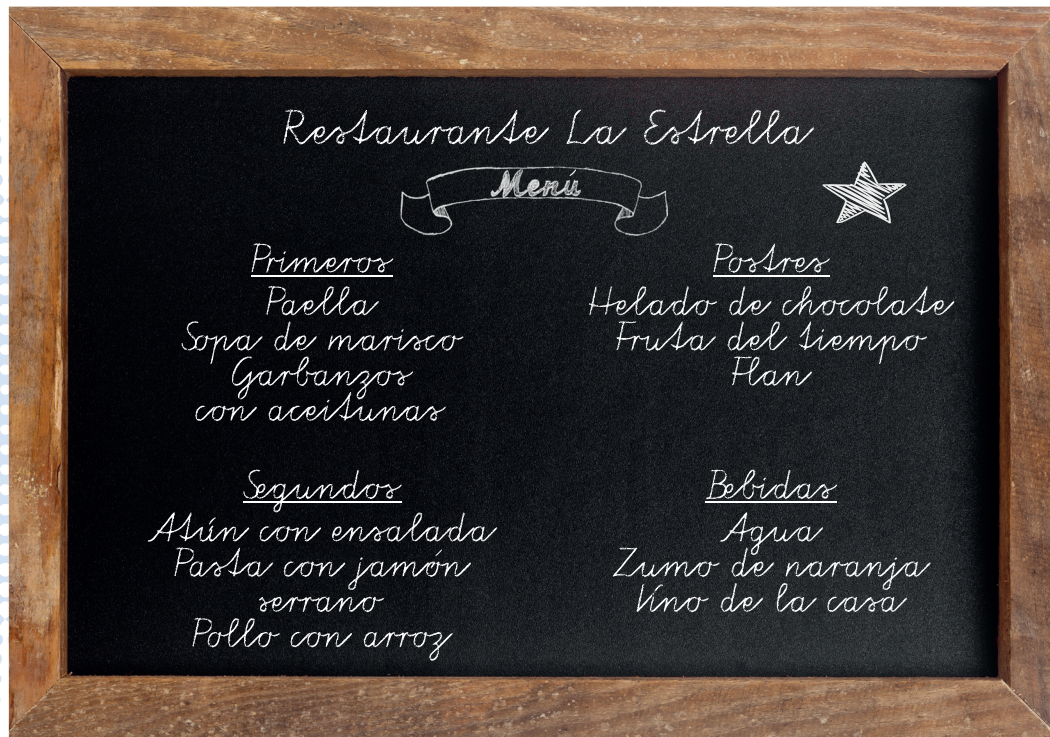 Restaurante La Estrella
Menú
Primeros
Paella
Sopa de marisco
Garbanzos
con aceitunas
Segundos
Atún con ensalada
Pasta con jamón
serrano
Pollo con arroz
Postres
Helado de chocolate
Fruta del tiempo
Flan
Bebidas
Agua
Zumo de naranja
Vino de la casa